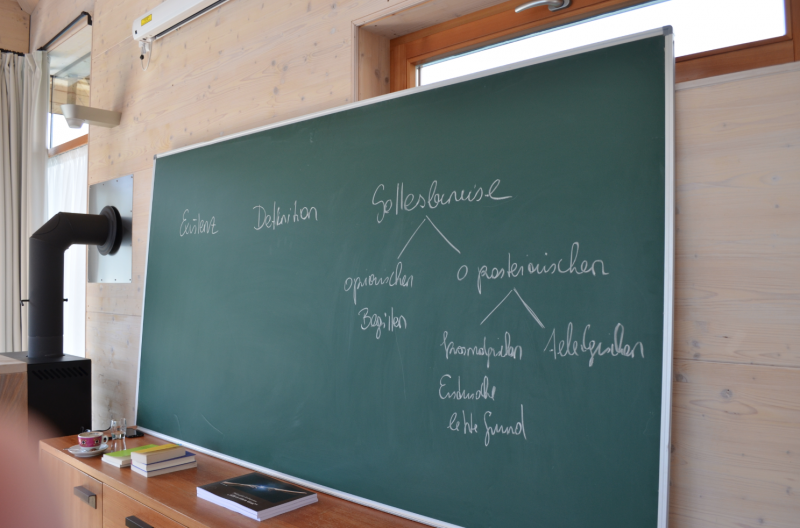 Existenz Definition Gottesbeweise
apriorischen a posteriorischen
Begriffen
kosmologischen teleologischen
Endursache
letzte Grund